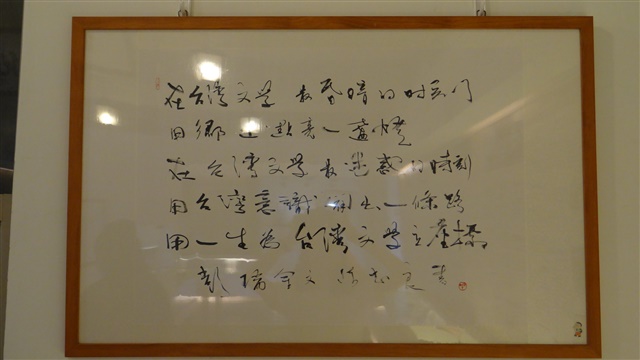 在台灣文學最昏暗的時刻
用鄉土點亮一盞燈
在台灣文學最迷惑的時刻
用台灣意識開出一條路
用一生為台灣文學立座標
彭瑞金文